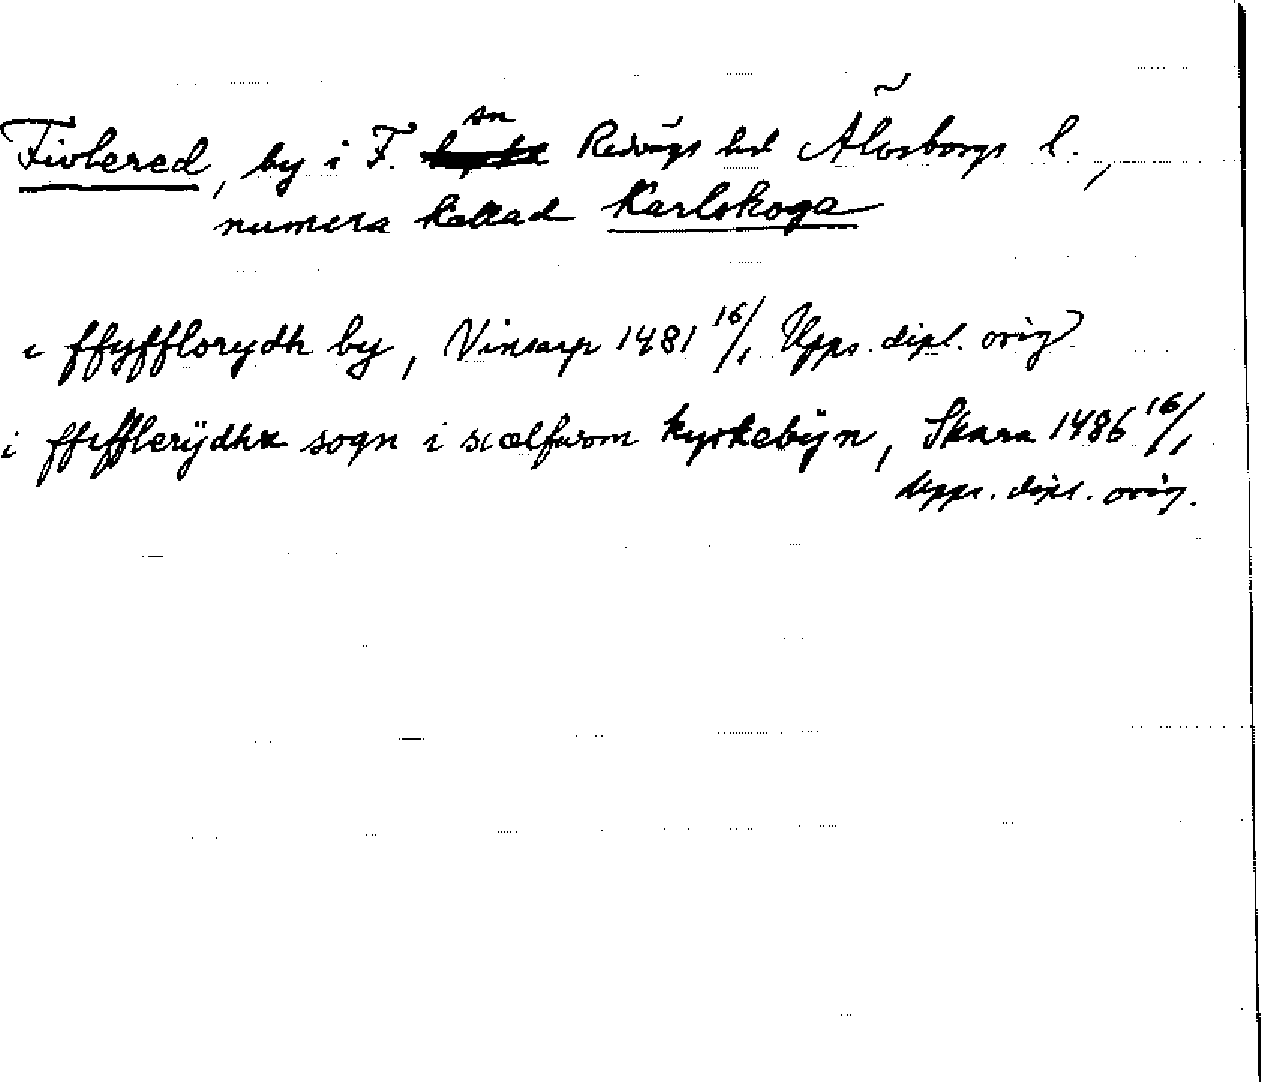 Fivlered, by i F. sn Redvägs hd Älvsborgs l.,
numera kallad Karlskoga
i ffyfflorydh by, Vinsarp 1481 16/1, Upps. dipl. orig
i ffifflerÿdhæ sogn i siælfwom kyrkebÿn, Skara 1486 16/1,
Upps. dipl. orig.